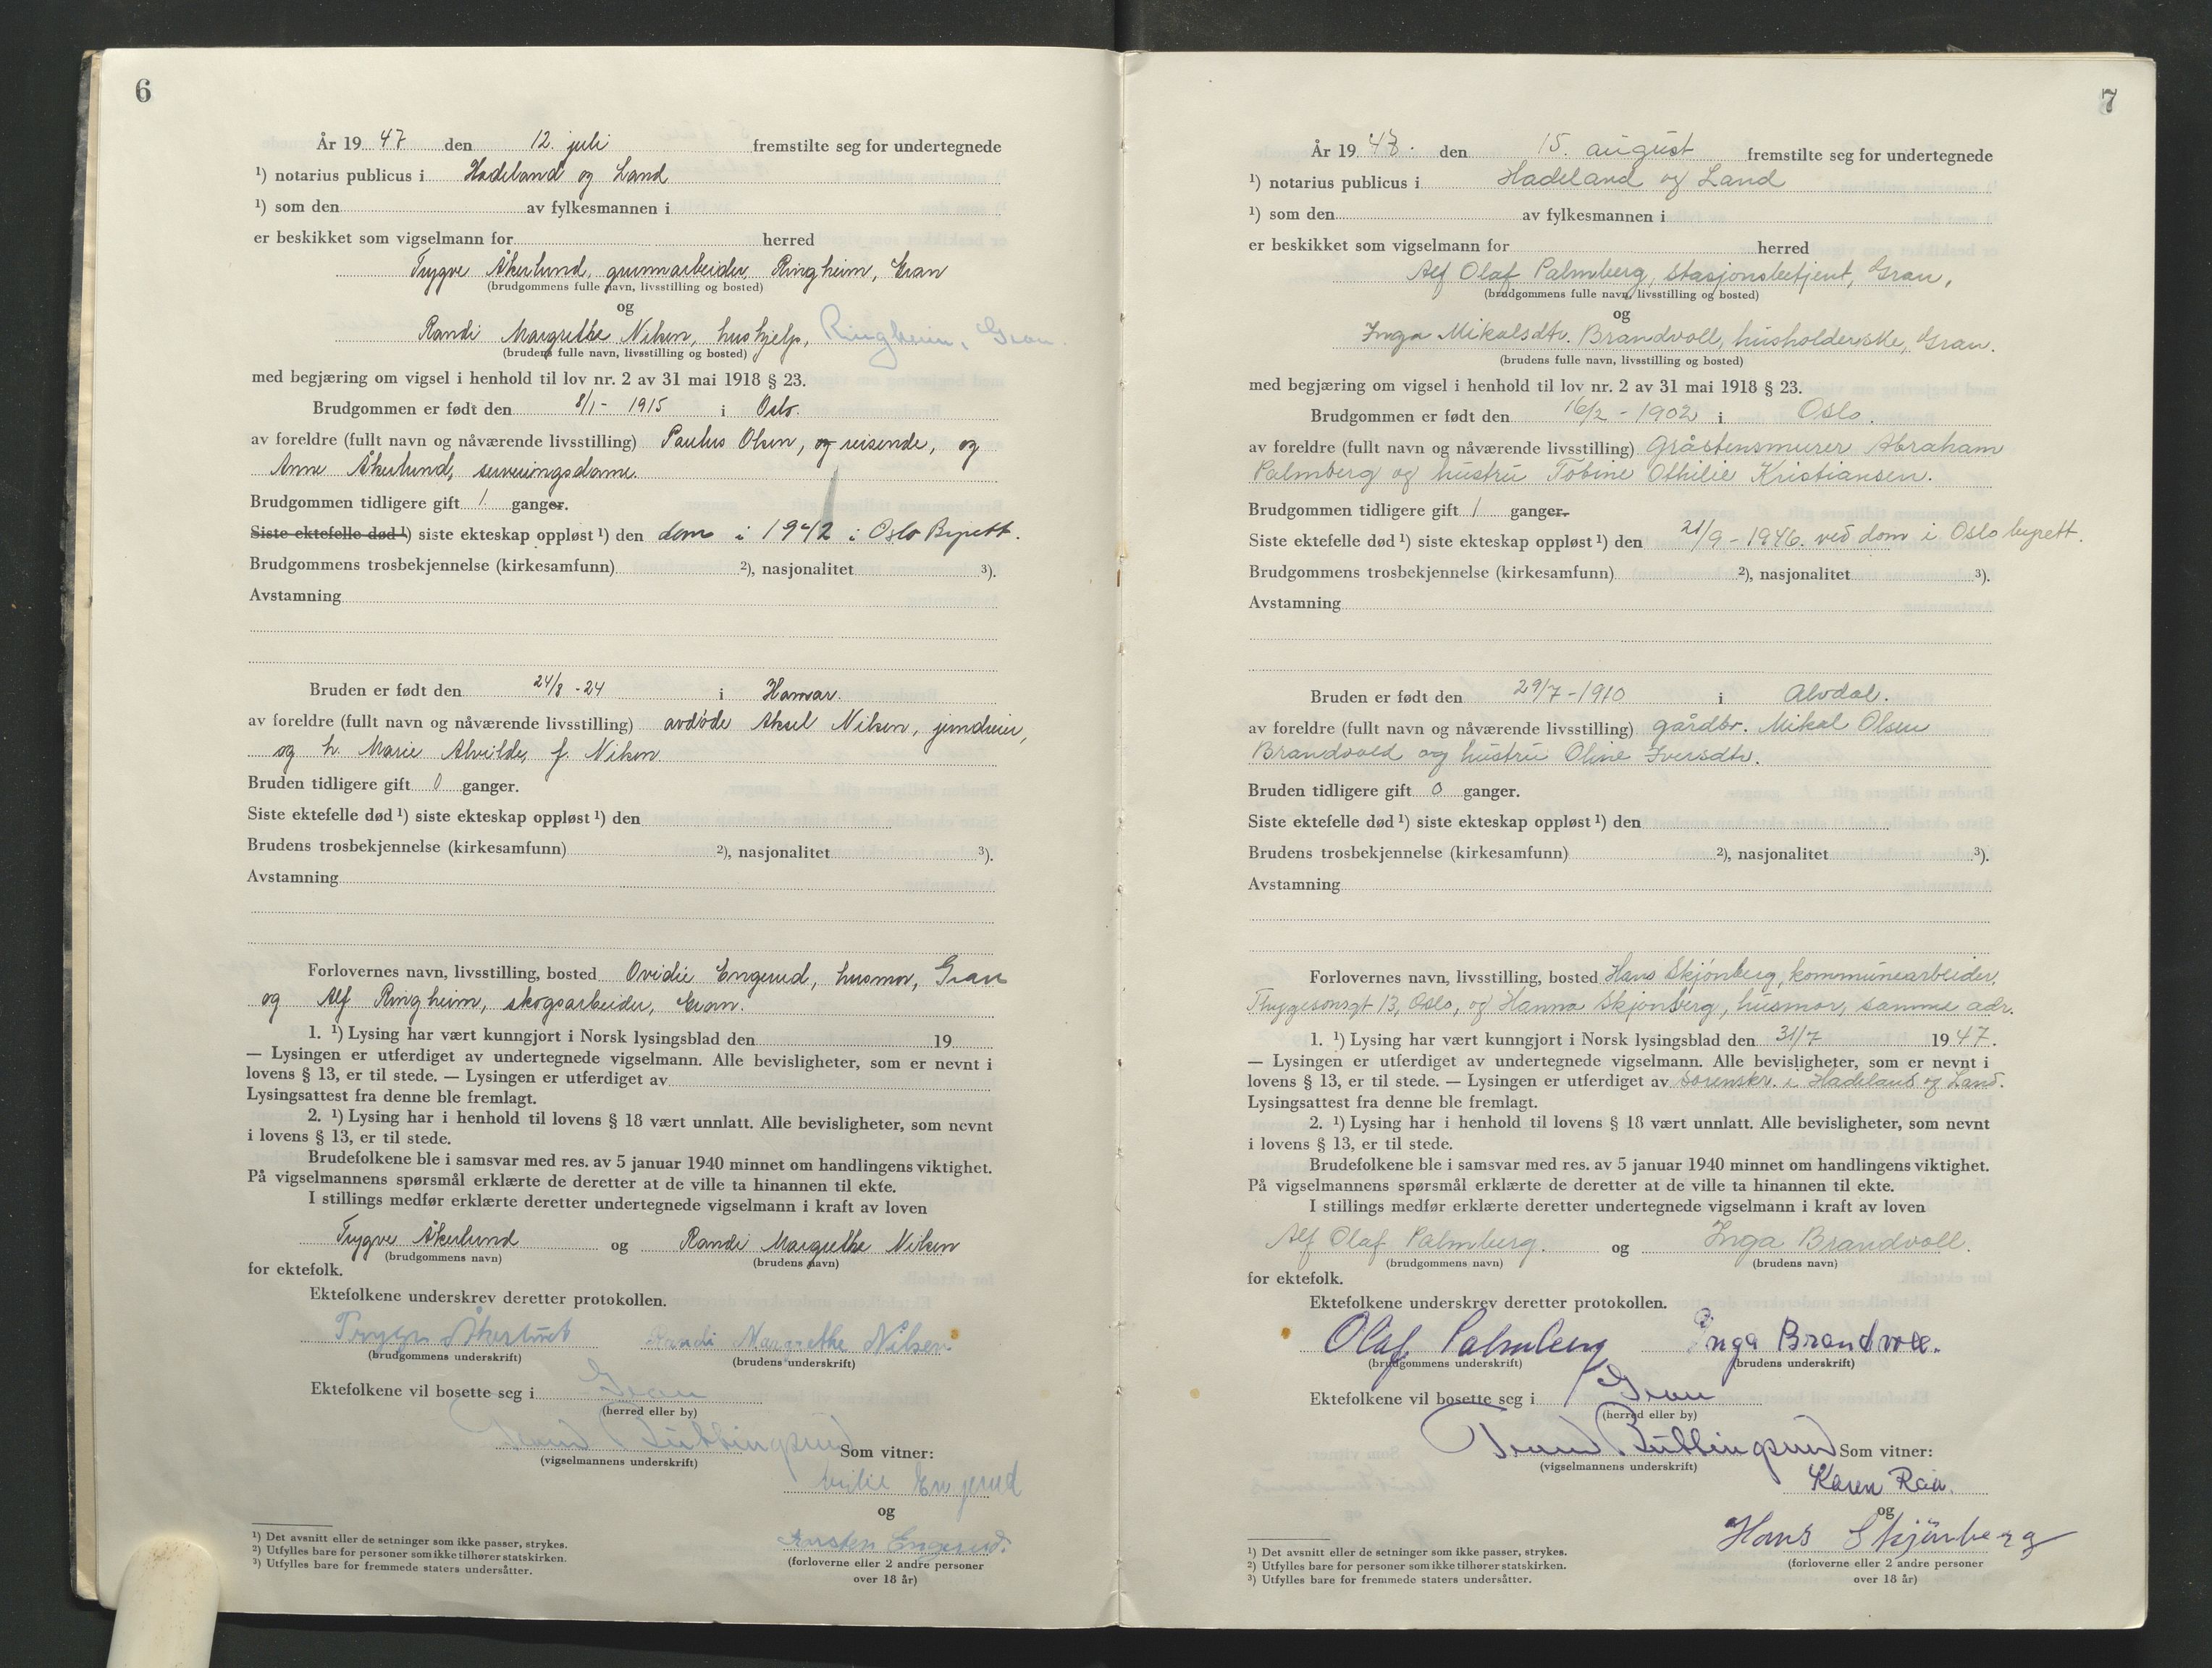 6
År 19 47 den 12. juli fremstilte seg for undertegnede
¹) notarius publicus i Hadeland og Land
¹) som den av fylkesmannen i
er beskikket som vigselmann for herred
Trygve Åkerlund, grunnarbeider, Ringheim, Gran
(brudgommens fulle navn, livsstilling og bosted)
og
Randi Margrethe Nilsen, hushjelp, Ringheim, Gran.
(brudens fulle navn, livsstilling og bosted)
med begjæring om vigsel i henhold til lov nr. 2 av 31 mai 1918 § 23.
Brudgommen er født den 8/1 - 1915 i Oslo.
av foreldre (fullt navn og nåværende livsstilling) Paulus Olsen, og reisende, og
Anne Åkerlund, serveringsdame.
Brudgommen tidligere gift 1 ganger.
Siste ektefelle død ¹) siste ekteskap oppløst ¹) den dom i 1942 i Oslo Byrett.
Brudgommens trosbekjennelse (kirkesamfunn) ²), nasjonalitet ³).
Avstamning
Bruden er født den 24/8 - 24 i Hamar.
av foreldre (fullt navn og nåværende livsstilling) avdøde Aksel Nilsen,
og h. Marie Alvilde, f. Nilsen
Bruden tidligere gift 0 ganger.
Siste ektefelle død ¹) siste ekteskap oppløst ¹) den
Brudens trosbekjennelse (kirkesamfunn) ²), nasjonalitet ³).
Avstamning
Forlovernes navn, livsstilling, bosted Ovidie Engerud, husmor, Gran
og Alf Ringheim, skogsarbeider, Gran.
1. ¹) Lysing har vært kunngjort i Norsk lysingsblad den 19
— Lysingen er utferdiget av undertegnede vigselmann. Alle bevisligheter, som er nevnt i
lovens § 13, er til stede. — Lysingen er utferdiget av
Lysingsattest fra denne ble fremlagt.
2. ¹) Lysing har i henhold til lovens § 18 vært unnlatt. Alle bevisligheter, som nevnt
i lovens § 13, er til stede.
Brudefolkene ble i samsvar med res. av 5 januar 1940 minnet om handlingens viktighet.
På vigselmannens spørsmål erklærte de deretter at de ville ta hinannen til ekte.
I stillings medfør erklærte deretter undertegnede vigselmann i kraft av loven
Trygve Åkerlund og Randi Margrethe Nilsen
(brudgommens navn) (brudens navn)
for ektefolk.
Ektefolkene underskrev deretter protokollen.
Trygve Åkerlund Randi Margrethe Nilsen.
(brudgommens underskrift) (brudens underskrift)
Ektefolkene vil bosette seg i Gran
(herred eller by)
Som vitner:
(vigselmannens underskrift)
Engerud
og
Engerud.
(forloverne eller 2 andre personer
over 18 år)
¹) Det avsnitt eller de setninger som ikke passer, strykes.
²) Utfylles bare for personer som ikke tilhører statskirken.
³) Utfylles bare for fremmede staters undersåtter.
7
År 19 47. den 15. august fremstilte seg for undertegnede
¹) notarius publicus i Hadeland og Land
¹) som den av fylkesmannen i
er beskikket som vigselmann for herred
Alf Olaf Palmberg, stasjonsbetjent, Gran,
(brudgommens fulle navn, livsstilling og bosted)
og
Inga Mikalsdtr. Brandvoll, husholderske, Gran.
(brudens fulle navn, livsstilling og bosted)
med begjæring om vigsel i henhold til lov nr. 2 av 31 mai 1918 § 23.
Brudgommen er født den 16/2 - 1902 i Oslo.
av foreldre (fullt navn og nåværende livsstilling) Gråstensmurer Abraham
Palmberg og hustru Tobine Othilie Kristiansen.
Brudgommen tidligere gift 1 ganger.
Siste ektefelle død ¹) siste ekteskap oppløst ¹) den 21/9 - 1946. ved dom i Oslo byrett.
Brudgommens trosbekjennelse (kirkesamfunn) ²), nasjonalitet ³).
Avstamning
Bruden er født den 29/7 - 1910 i Alvdal.
av foreldre (fullt navn og nåværende livsstilling) gårdbr. Mikal Olsen
Brandvold og hustru Oline Iversdtr.
Bruden tidligere gift 0 ganger.
Siste ektefelle død ¹) siste ekteskap oppløst ¹) den
Brudens trosbekjennelse (kirkesamfunn) ²), nasjonalitet ³).
Avstamning
Forlovernes navn, livsstilling, bosted Hans Skjönberg, kommunearbeider,
Thygesonsgt 13, Oslo, og Hanna Skjönberg, husmor, samme adr.
1. ¹) Lysing har vært kunngjort i Norsk lysingsblad den 31/7 19 47.
— Lysingen er utferdiget av undertegnede vigselmann. Alle bevisligheter, som er nevnt i
lovens § 13, er til stede. — Lysingen er utferdiget av sorenskr. i Hadeland og Land.
Lysingsattest fra denne ble fremlagt.
2. ¹) Lysing har i henhold til lovens § 18 vært unnlatt. Alle bevisligheter, som nevnt
i lovens § 13, er til stede.
Brudefolkene ble i samsvar med res. av 5 januar 1940 minnet om handlingens viktighet.
På vigselmannens spørsmål erklærte de deretter at de ville ta hinannen til ekte.
I stillings medfør erklærte deretter undertegnede vigselmann i kraft av loven
Alf Olaf Palmberg. og Inga Brandvoll.
(brudgommens navn) (brudens navn)
for ektefolk.
Ektefolkene underskrev deretter protokollen.
Olaf Palmberg Inga Brandvoll.
(brudgommens underskrift) (brudens underskrift)
Ektefolkene vil bosette seg i Gran
(herred eller by)
Som vitner:
(vigselmannens underskrift)
Karen
og
Hans Skjönberg
(forloverne eller 2 andre personer
over 18 år)
¹) Det avsnitt eller de setninger som ikke passer, strykes.
²) Utfylles bare for personer som ikke tilhører statskirken.
³) Utfylles bare for fremmede staters undersåtter.